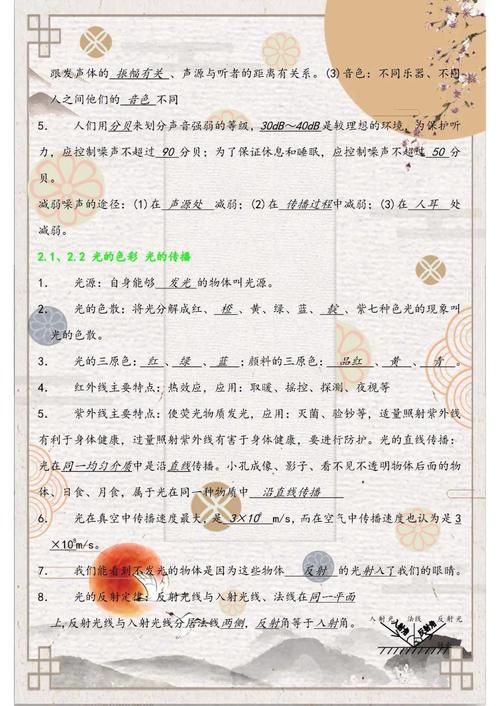 跟发声体的 振幅有关 、声源与听者的距离有关系。(3)音色：不同乐器、不同
人之间他们的 音色 不同
5. 人们用分贝来划分声音强弱的等级，30dB～40dB是较理想的环境，为保护听
力，应控制噪声不超过 90 分贝；为了保证休息和睡眠，应控制噪声不超过 50 分
贝。
减弱噪声的途径：(1)在 声源处 减弱；(2)在 传播过程中减弱；(3)在 人耳 处
减弱。
2.1、2.2 光的色彩 光的传播
1. 光源：自身能够 发光 的物体叫光源。
2. 光的色散：将光分解成红、 橙 、黄、绿、蓝、 靛 、紫七种色光的现象叫
光的色散。
3. 光的三原色：红 、绿 、蓝 ；颜料的三原色： 品红 、 黄 、 青 。
4. 红外线主要特点：热效应，应用：取暖、摇控、探测、夜视等
5. 紫外线主要特点：使荧光物质发光，应用：灭菌、验钞等，适量照射紫外线
有利于身体健康，过量照射紫外线有害于身体健康，要进行防护。光的直线传播：
光在同一均匀介质中是沿直线传播。小孔成像、影子、看不见不透明物体后面的物
体、日食、月食，属于光在同一种物质中 沿直线传播
6. 光在真空中传播速度最大，是 3×10⁸ m/s，而在空气中传播速度也认为是 3
×10⁸m/s。
7. 我们能看到不发光的物体是因为这些物体 反射 的光射入了我们的眼睛。
8. 光的反射定律：反射光线与入射光线、法线在同一平面
上，反射光线与入射光线分居法线两侧，反射角等于入射角。
入射光 法线 反射光
入射角 反射角